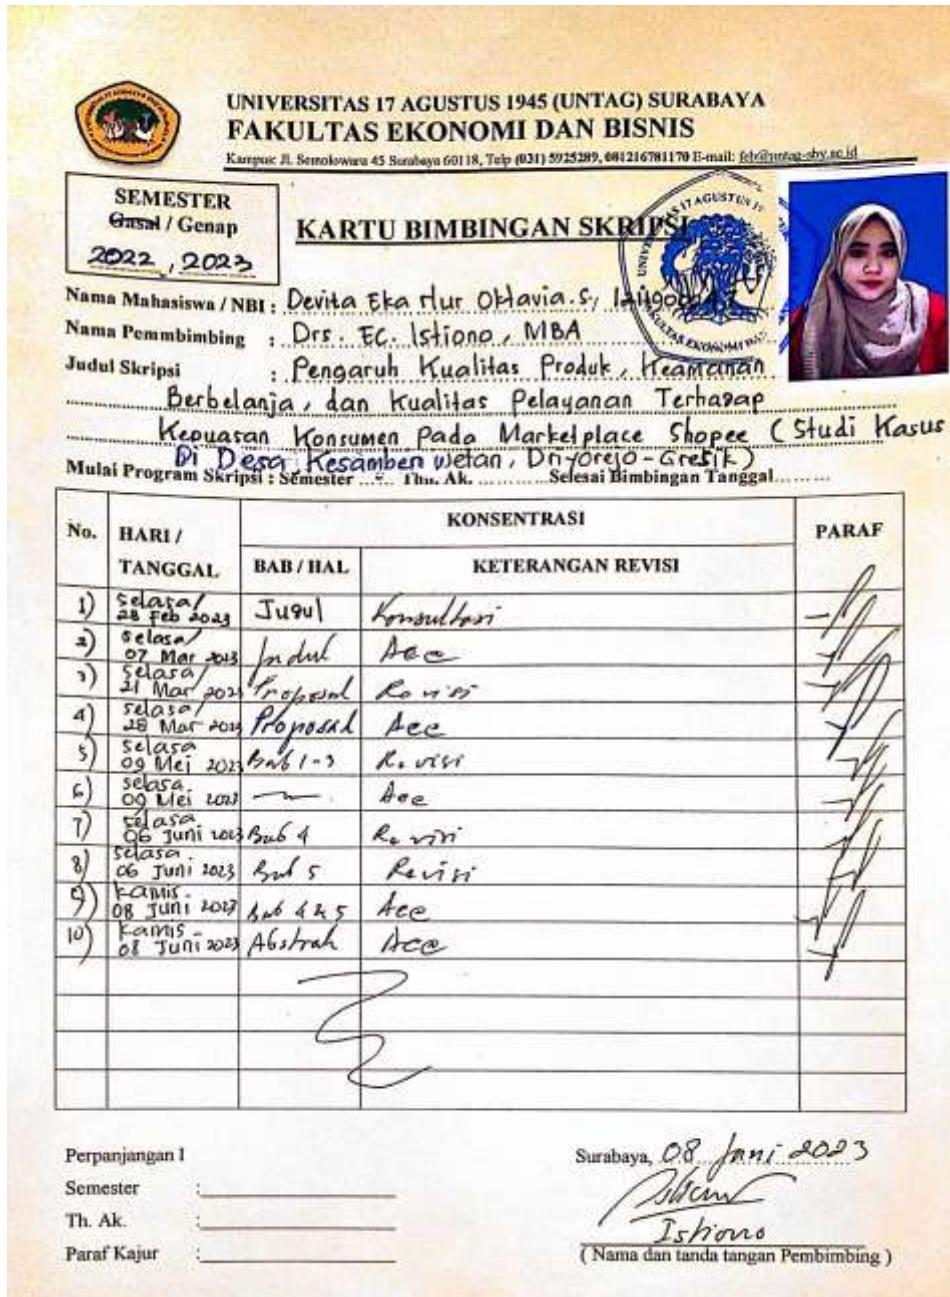 UNIVERSITAS 17 AGUSTUS 1945 (UNTAG) SURABAYA
FAKULTAS EKONOMI DAN BISNIS
Kampus: Jl. Semolowaru 45 Surabaya 60118, Telp (031) 5925289, 081216781170 E-mail: feb@untag-sby.ac.id
SEMESTER
Gasal / Genap
2022, 2023
KARTU BIMBINGAN SKRIPSI
Nama Mahasiswa / NBI : Devita Eka Nur Oktavia.S,
Nama Pemmbimbing : Drs. EC. Istiono, MBA
Judul Skripsi : Pengaruh Kualitas Produk, Keamanan
Berbelanja, dan Kualitas Pelayanan Terhadap
Kepuasan Konsumen Pada Marketplace Shopee (Studi Kasus
Di Desa Kesamben Wetan, Driyorejo-Gresik)
Mulai Program Skripsi : Semester ...... Thn. Ak. ............ Selesai Bimbingan Tanggal.........
No. HARI / TANGGAL KONSENTRASI PARAF
BAB / HAL KETERANGAN REVISI
1) Selasa/ 28 Feb 2023 Judul Konsultasi
2) Selasa/ 07 Mar 2023 Judul Acc
3) Selasa/ 21 Mar 2023 Proposal Revisi
4) Selasa/ 28 Mar 2023 Proposal Acc
5) Selasa 09 Mei 2023 Bab 1-3 Revisi
6) Selasa. 09 Mei 2023 Acc
7) Selasa. 06 Juni 2023 Bab 4 Revisi
8) Selasa. 06 Juni 2023 Bab 5 Revisi
9) Kamis. 08 Juni 2023 Bab 4 & 5 Acc
10) Kamis. 08 Juni 2023 Abstrak Acc
Perpanjangan I
Semester :
Th. Ak. :
Paraf Kajur :
Surabaya, 08 Juni 2023
Istiono
( Nama dan tanda tangan Pembimbing )